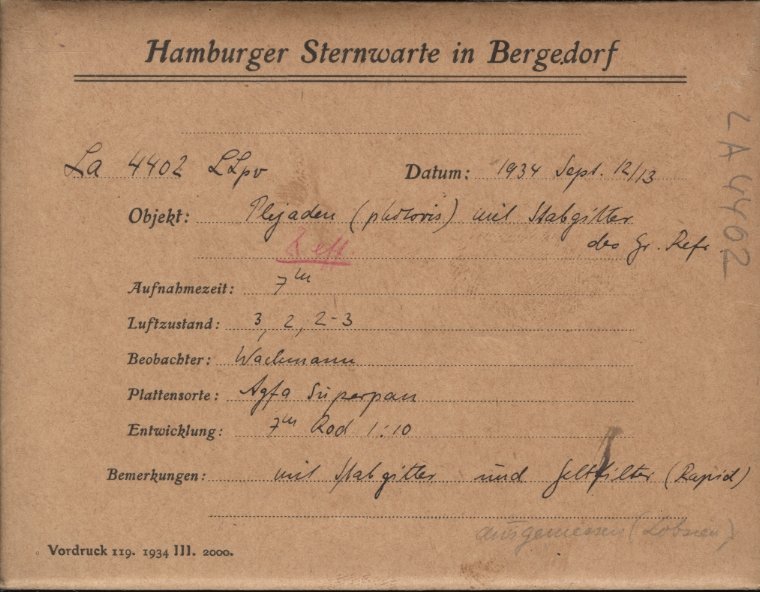 Hamburger Sternwarte in Bergedorf
La 4402 LLpv Datum: 1934 Sept. 12/13
Objekt: Plejaden (photovis) mit Stabgitter
des Gr. Refr
Aufnahmezeit: 7m
Luftzustand: 3, 2, 2-3
Beobachter: Wachmann
Plattensorte: Agfa Superpan
Entwicklung: 7m Rod 1:10
Bemerkungen: mit Stabgitter und Gelbfilter (Rapid)
ausgemessen
Vordruck 119. 1934 III. 2000.
LA 4402